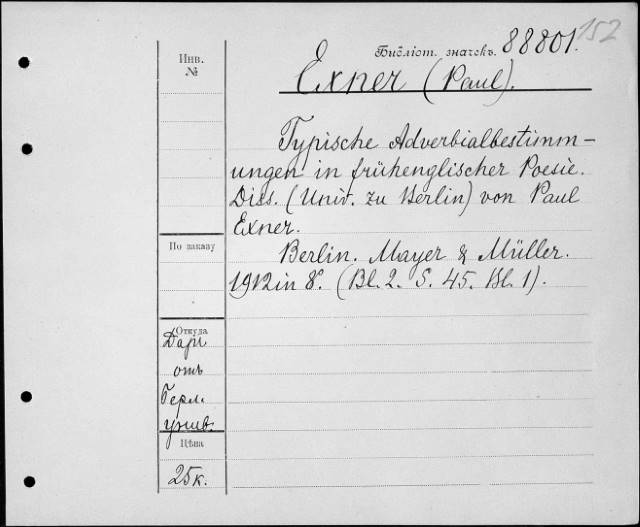 152
Библіот. значекъ. 88801.
Инв.
№
Exner (Paul).
Typische Adverbialbestimm-
ungen in frühenglischer Poesie.
Diss. (Univ. zu Berlin) von Paul
Exner.
По заказу
Berlin. Mayer & Müller.
1912 in 8°. (Bl. 2. S. 45. Bl. 1).
Откуда
Даръ
отъ
Герм.
унив.
Цѣна
25 к.